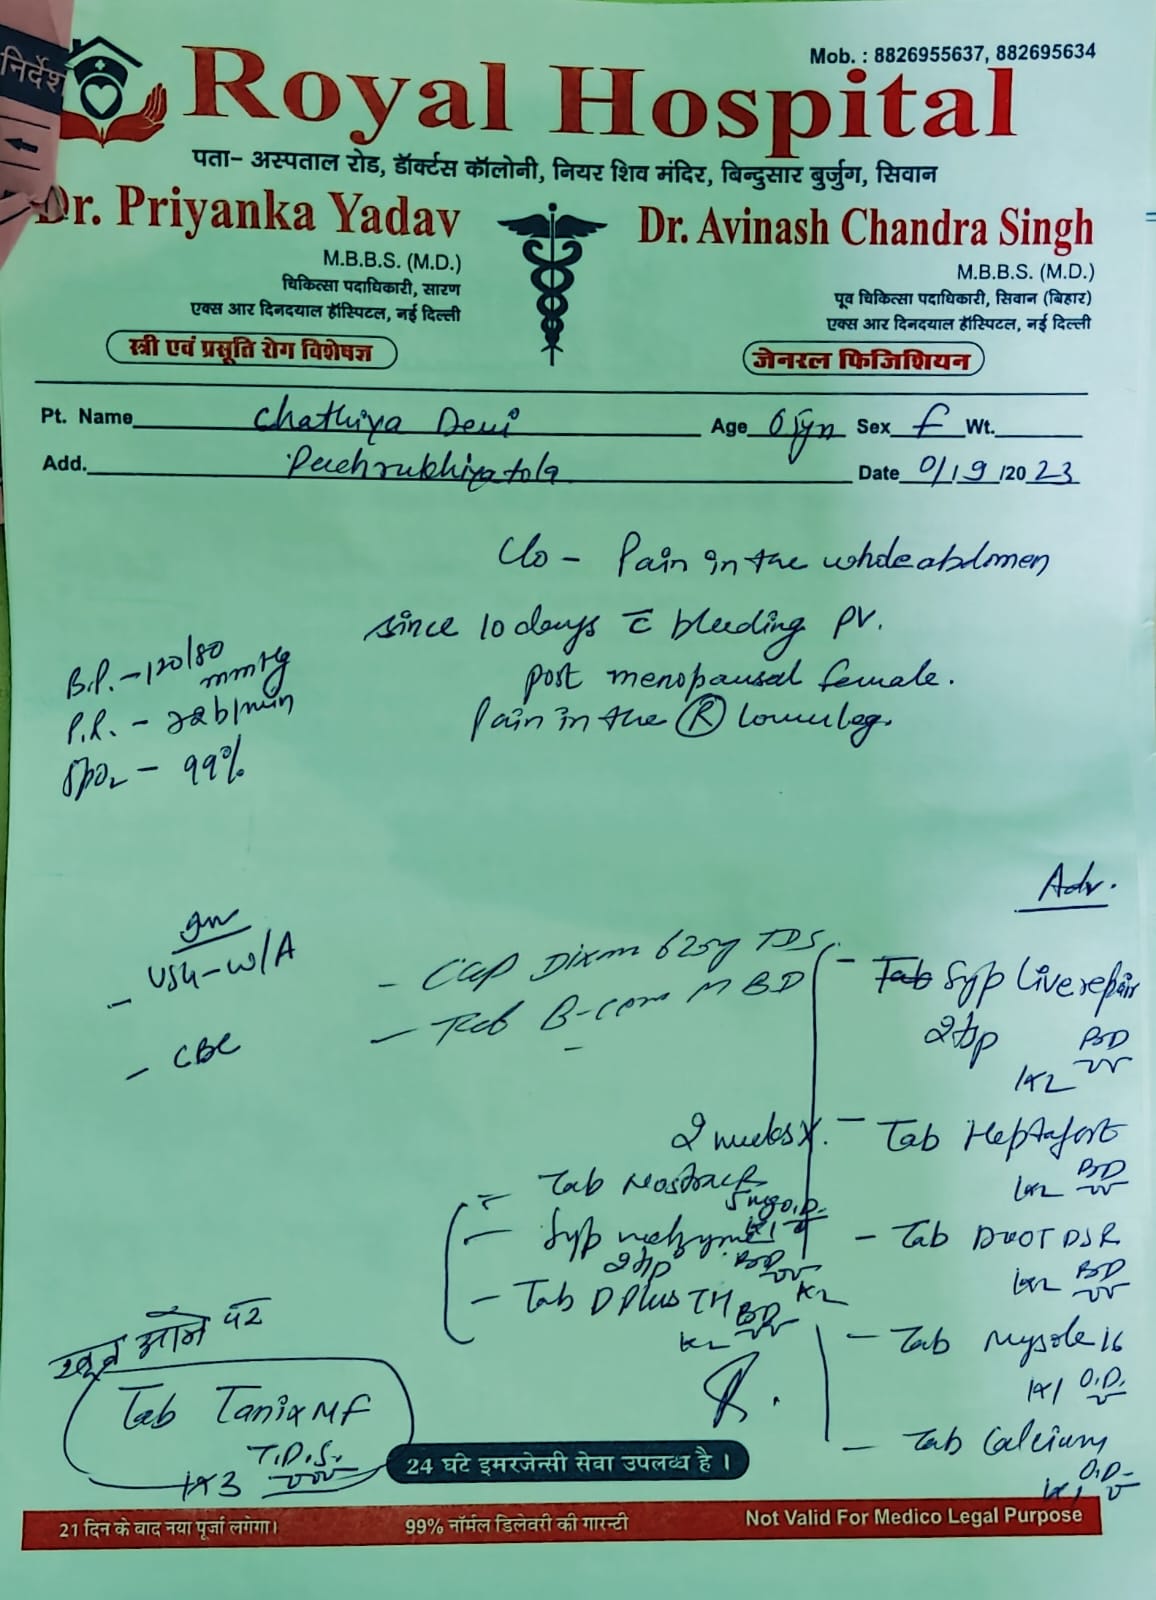 निर्देश
Mob. : 8826955637, 882695634
Royal Hospital
पता- अस्पताल रोड, डॉक्टर्स कॉलोनी, नियर शिव मंदिर, बिन्दुसार बुर्जुग, सिवान
Dr. Priyanka Yadav
M.B.B.S. (M.D.)
चिकित्सा पदाधिकारी, सारण
एक्स आर दिनदयाल हॉस्पिटल, नई दिल्ली
स्त्री एवं प्रसूति रोग विशेषज्ञ
Dr. Avinash Chandra Singh
M.B.B.S. (M.D.)
पूव चिकित्सा पदाधिकारी, सिवान (बिहार)
एक्स आर दिनदयाल हॉस्पिटल, नई दिल्ली
जेनरल फिजिशियन
Pt. Name Chathiya Devi Age Sex F Wt.
Add. Pachrukhiya tola Date 01/9/2023
C/o - Pain in the whole abdomen
since 10 days c̄ bleeding PV.
post menopausal female.
Pain in the Ⓡ lower leg.
B.P. - 120/80 mmHg
P.R. - b/min
SpO2 - 99%
Adv.
USG - W/A
- CBC
- Cap 625 TDS
- Tab B-com M BD
- Syp Liverepair
2tsp BD
1x2
2 weeks x
- Tab Heptafort
1x2 BD
- Tab DSR
1x2 BD
- Tab 16
1x1 O.D.
- Tab Calcium
1x1 O.D.
- Tab
5mg O.D.
1x1
- Syp
2tsp BD
- Tab D Plus TH BD
1x2
खून आने पर
Tab Tanix MF
T.D.S.
1x3
24 घंटे इमरजेन्सी सेवा उपलब्ध है।
21 दिन के बाद नया पूर्जा लगेगा।
99% नॉर्मल डिलेवरी की गारन्टी
Not Valid For Medico Legal Purpose